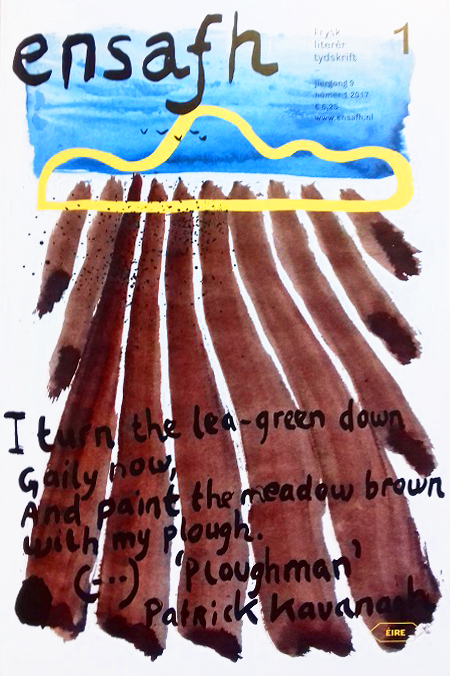 ensafh
frysk
literêr
tydskrift
1
jiergong 9
nûmer 1 2017
€ 6,25
www.ensafh.nl
I turn the lea-green down
Gaily now,
And paint the meadow brown
with my plough.
(-··) 'Ploughman'
Patrick Kavanagh
ÉIRE